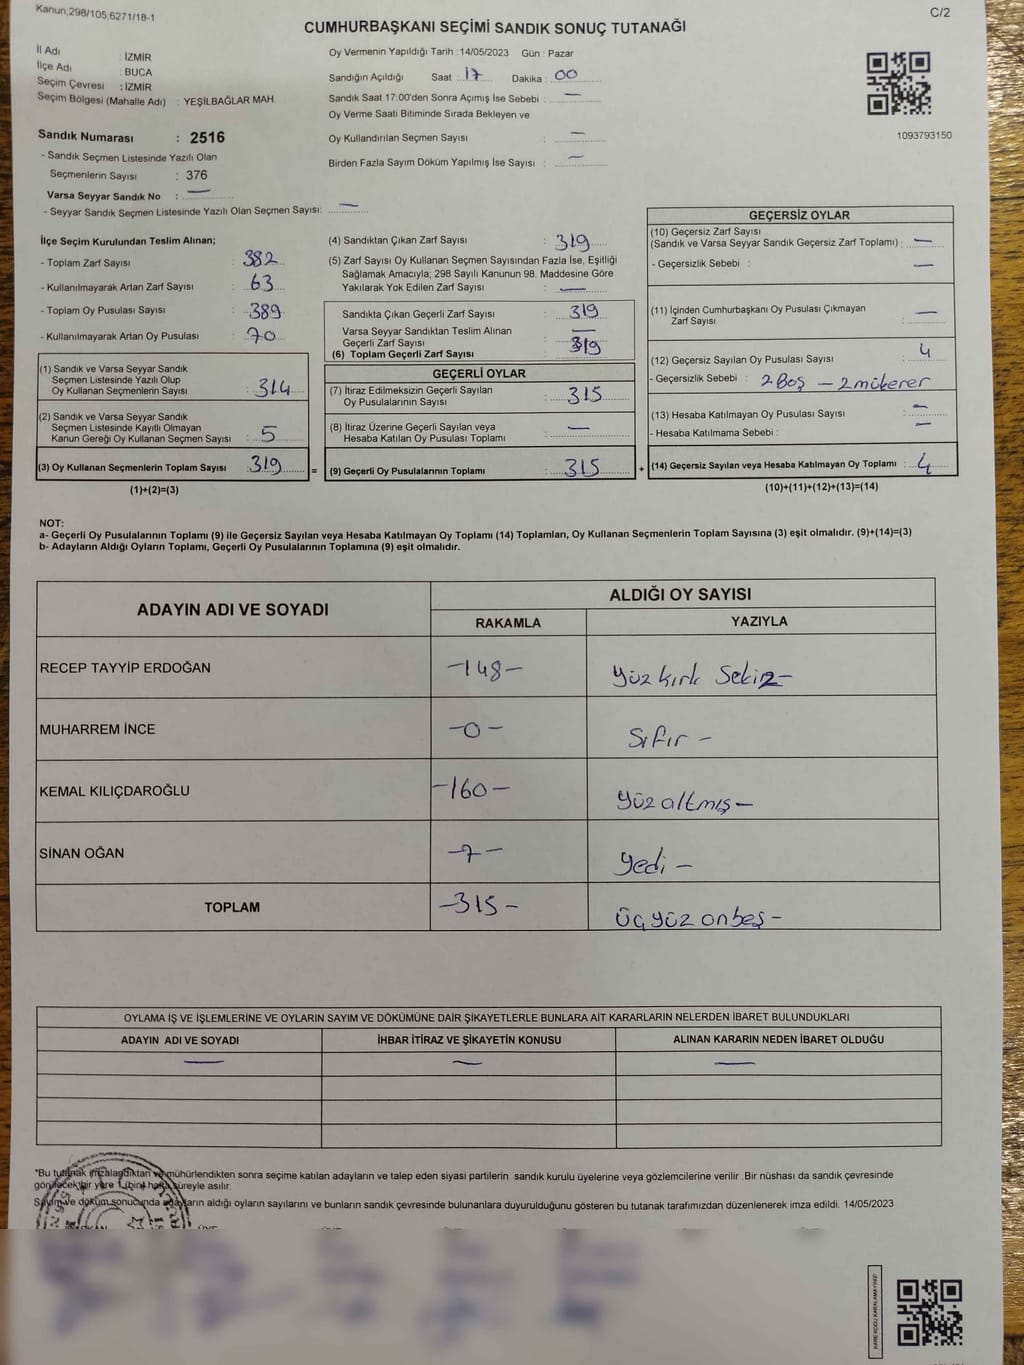 Kanun;298/105,6271/18-1
C/2
CUMHURBAŞKANI SEÇİMİ SANDIK SONUÇ TUTANAĞI
İl Adı : İZMİR
İlçe Adı : BUCA
Seçim Çevresi : İZMİR
Seçim Bölgesi (Mahalle Adı) : YEŞİLBAĞLAR MAH.
Oy Vermenin Yapıldığı Tarih :14/05/2023 Gün : Pazar
Sandığın Açıldığı Saat : 17 Dakika : 00
Sandık Saat 17:00'den Sonra Açımış İse Sebebi : —
Oy Verme Saati Bitiminde Sırada Bekleyen ve
Oy Kullandırılan Seçmen Sayısı : —
Birden Fazla Sayım Döküm Yapılmış İse Sayısı : —
1093793150
Sandık Numarası : 2516
- Sandık Seçmen Listesinde Yazılı Olan
Seçmenlerin Sayısı : 376
Varsa Seyyar Sandık No : —
- Seyyar Sandık Seçmen Listesinde Yazılı Olan Seçmen Sayısı: —
İlçe Seçim Kurulundan Teslim Alınan;
- Toplam Zarf Sayısı : 382
- Kullanılmayarak Artan Zarf Sayısı : 63
- Toplam Oy Pusulası Sayısı : 389
- Kullanılmayarak Artan Oy Pusulası : 70
(1) Sandık ve Varsa Seyyar Sandık
Seçmen Listesinde Yazılı Olup
Oy Kullanan Seçmenlerin Sayısı : 314
(2) Sandık ve Varsa Seyyar Sandık
Seçmen Listesinde Kayıtlı Olmayan
Kanun Gereği Oy Kullanan Seçmen Sayısı : 5
(3) Oy Kullanan Seçmenlerin Toplam Sayısı : 319
(1)+(2)=(3)
(4) Sandıktan Çıkan Zarf Sayısı : 319
(5) Zarf Sayısı Oy Kullanan Seçmen Sayısından Fazla İse, Eşitliği
Sağlamak Amacıyla; 298 Sayılı Kanunun 98. Maddesine Göre
Yakılarak Yok Edilen Zarf Sayısı : —
Sandıkta Çıkan Geçerli Zarf Sayısı : 319
Varsa Seyyar Sandıktan Teslim Alınan
Geçerli Zarf Sayısı : —
(6) Toplam Geçerli Zarf Sayısı : 319
GEÇERLİ OYLAR
(7) İtiraz Edilmeksizin Geçerli Sayılan
Oy Pusulalarının Sayısı : 315
(8) İtiraz Üzerine Geçerli Sayılan veya
Hesaba Katılan Oy Pusulası Toplamı : —
= (9) Geçerli Oy Pusulalarının Toplamı : 315
GEÇERSİZ OYLAR
(10) Geçersiz Zarf Sayısı
(Sandık ve Varsa Seyyar Sandık Geçersiz Zarf Toplamı) : —
- Geçersizlik Sebebi : —
(11) İçinden Cumhurbaşkanı Oy Pusulası Çıkmayan
Zarf Sayısı : —
(12) Geçersiz Sayılan Oy Pusulası Sayısı : 4
- Geçersizlik Sebebi : 2 Boş — 2 mükerer
(13) Hesaba Katılmayan Oy Pusulası Sayısı : —
- Hesaba Katılmama Sebebi : —
+ (14) Geçersiz Sayılan veya Hesaba Katılmayan Oy Toplamı : 4
(10)+(11)+(12)+(13)=(14)
NOT:
a- Geçerli Oy Pusulalarının Toplamı (9) ile Geçersiz Sayılan veya Hesaba Katılmayan Oy Toplamı (14) Toplamları, Oy Kullanan Seçmenlerin Toplam Sayısına (3) eşit olmalıdır. (9)+(14)=(3)
b- Adayların Aldığı Oyların Toplamı, Geçerli Oy Pusulalarının Toplamına (9) eşit olmalıdır.
ADAYIN ADI VE SOYADI
ALDIĞI OY SAYISI
RAKAMLA YAZIYLA
RECEP TAYYİP ERDOĞAN -148- Yüz kırk Sekiz-
MUHARREM İNCE -0- Sıfır -
KEMAL KILIÇDAROĞLU -160- Yüz altmış-
SİNAN OĞAN -7- Yedi -
TOPLAM -315- Üçyüz onbeş-
OYLAMA İŞ VE İŞLEMLERİNE VE OYLARIN SAYIM VE DÖKÜMÜNE DAİR ŞİKAYETLERLE BUNLARA AİT KARARLARIN NELERDEN İBARET BULUNDUKLARI
ADAYIN ADI VE SOYADI İHBAR İTİRAZ VE ŞİKAYETİN KONUSU ALINAN KARARIN NEDEN İBARET OLDUĞU
— — —
"Bu tutanak imzalandıktan ve mühürlendikten sonra seçime katılan adayların ve talep eden siyasi partilerin sandık kurulu üyelerine ve gözlemcilerine verilir .Bir nüshası da sandık çevresinde
görülecek bir yere 1 (bir) hafta süreyle asılır.
Sayım ve döküm sonucunda adayların aldığı oyların sayılarını ve bunların sandık çevresinde bulunanlara duyurulduğunu gösteren bu tutanak tarafımızdan düzenlenerek imza edildi. 14/05/2023
KARE KODU KARALAMAYINIZ!